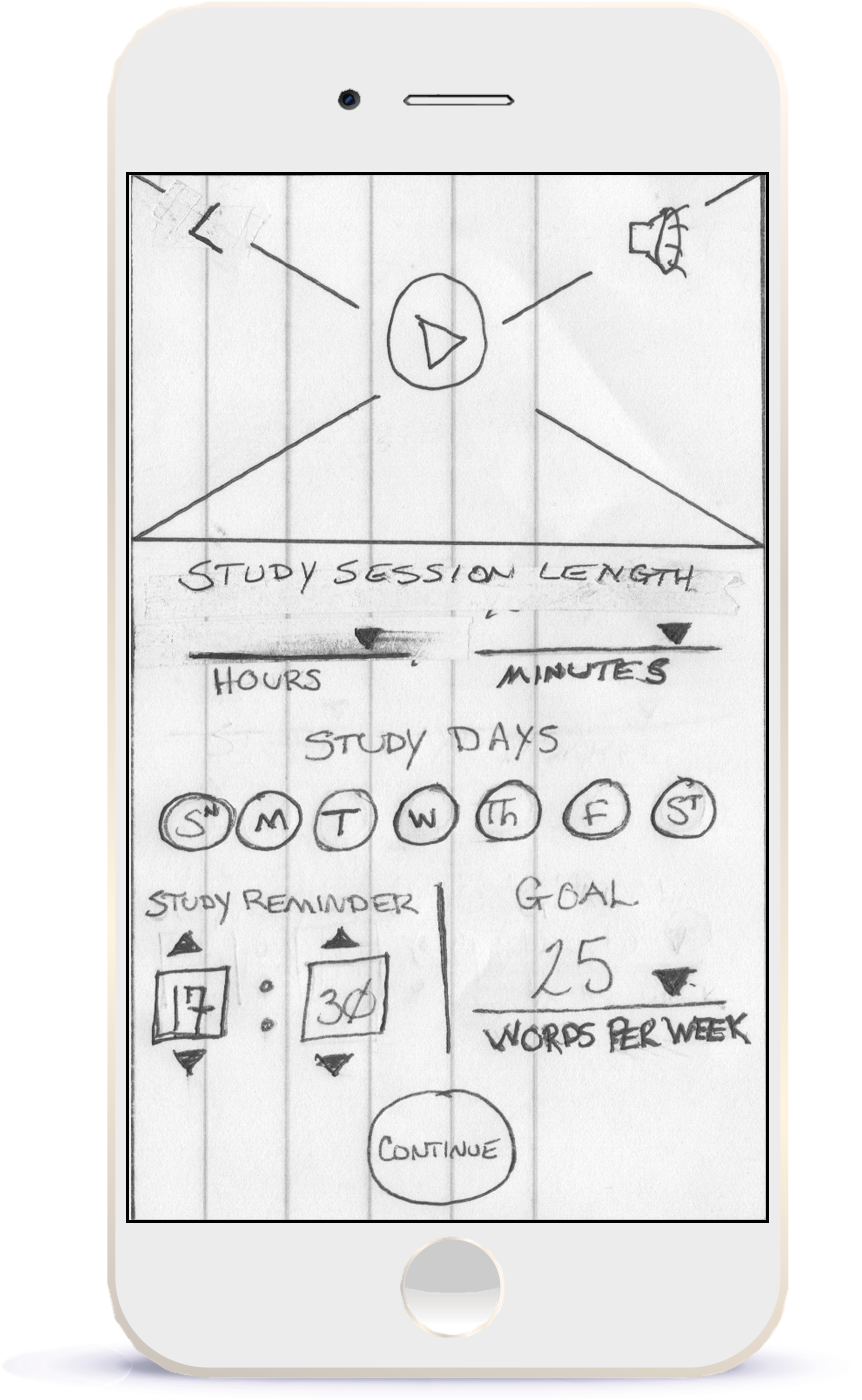 STUDY SESSION LENGTH
HOURS MINUTES
STUDY DAYS
SN M T W Th F ST
STUDY REMINDER
17 : 30
GOAL
25
WORDS PER WEEK
CONTINUE